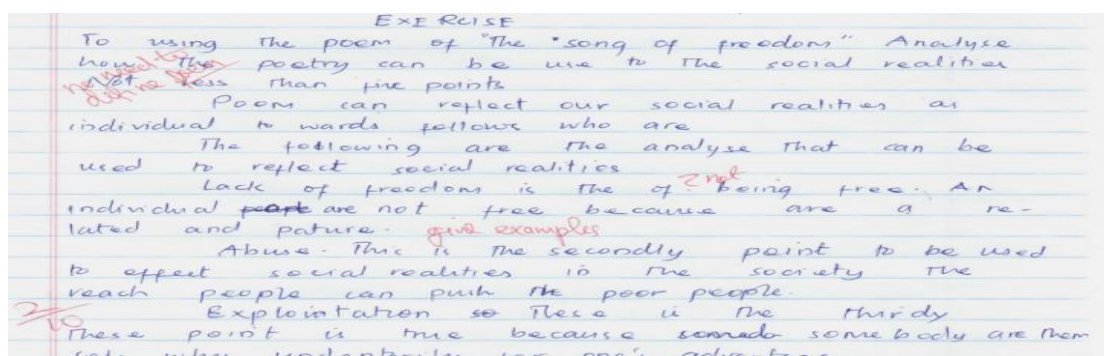 EXERCISE
To using The poem of "The "song of freedom" Analyse
how The poetry can be use to The social realities
Not less Than five points
no need to define poem
Poem can reflect our social realities as
individual to wards fellows who are
The following are The analyse That can be
used to reflect social realities
Lack of freedom is The of being free. An
? not
individual are not free because are a re-
lated and pature. give examples
Abuse. This is The secondly point to be used
to effect social realities in The society The
reach people can push the poor people.
Explointation so These is The thirdy
2/10
These point is true because somebody are Them